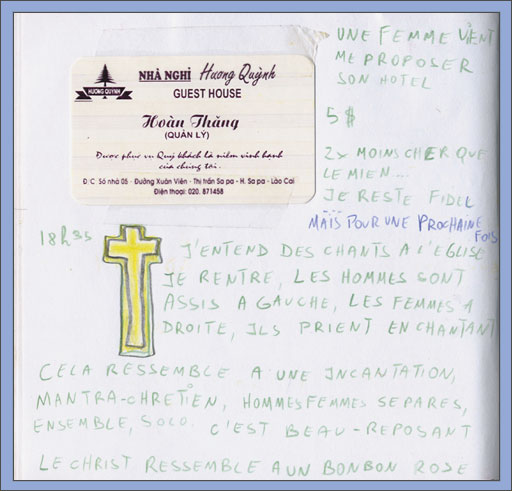 NHÀ NGHỈ Hương Quỳnh
HƯƠNG QUỲNH
GUEST HOUSE
Hoàn Thăng
(QUẢN LÝ)
Được phục vụ Quý khách là niềm vinh hạnh
của chúng tôi.
Đ/C: Số nhà 05 - Đường Xuân Viên - Thị trấn Sa pa - H. Sa pa - Lào Cai
Điện thoại: 020. 871458
UNE FEMME VIENT
ME PROPOSER
SON HOTEL
5$
2x MOINS CHER QUE
LE MIEN...
JE RESTE FIDEL
MAÏS POUR UNE PROCHAINE
FOIS
18H35
J'ENTEND DES CHANTS A L'EGLISE
JE RENTRE, LES HOMMES SONT
ASSIS A GAUCHE, LES FEMMES A
DROITE, ILS PRIENT EN CHANTANT
CELA RESSEMBLE A UNE INCANTATION,
MANTRA-CHRETÏEN, HOMMES FEMMES SEPARES,
ENSEMBLE, SOLO. C'EST BEAU-REPOSANT
LE CHRIST RESSEMBLE A UN BONBON ROSE